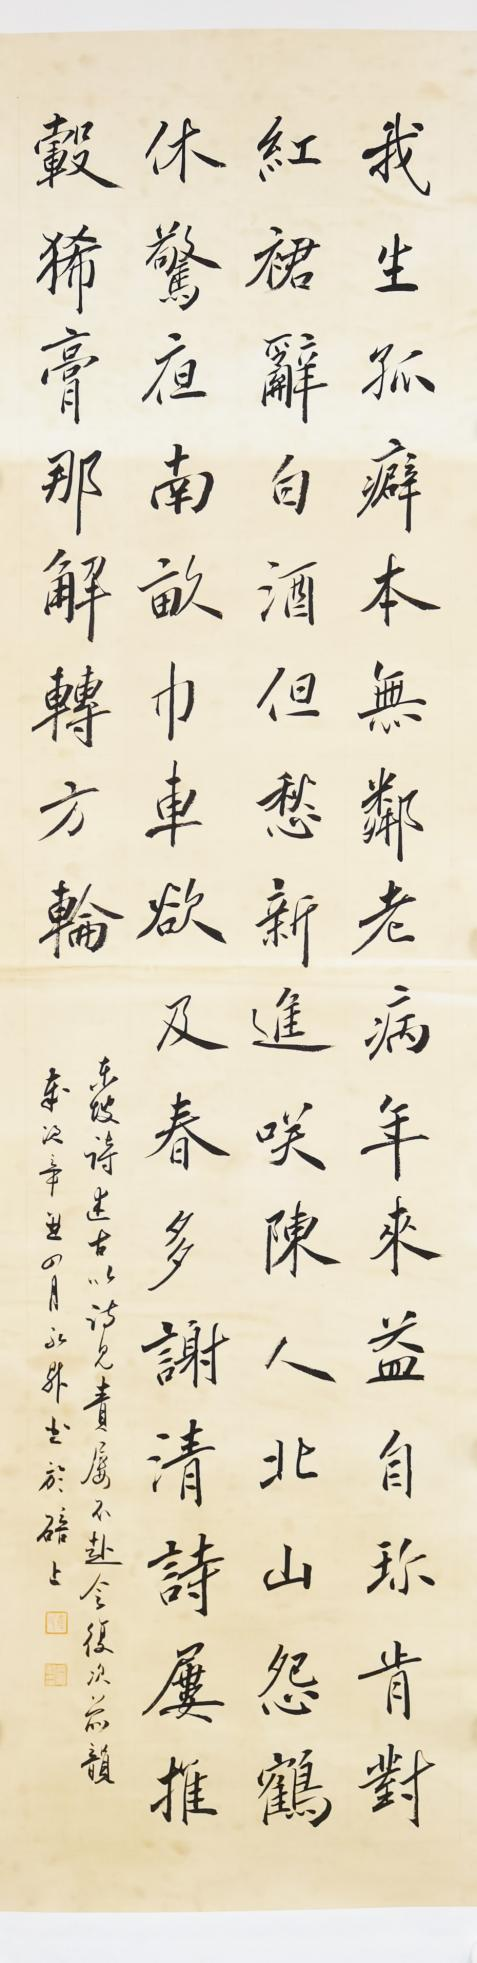 我生孤癖本無鄰老病年來益自珎肯對
紅裙辭白酒但愁新進咲陳人北山怨鶴
休驚夜南畝巾車欲及春多謝清詩屢推
轂狶膏那解轉方輪
東坡詩述古以詩見責屢不赴会復次前韻
歲次辛丑四月永昇书於碚上